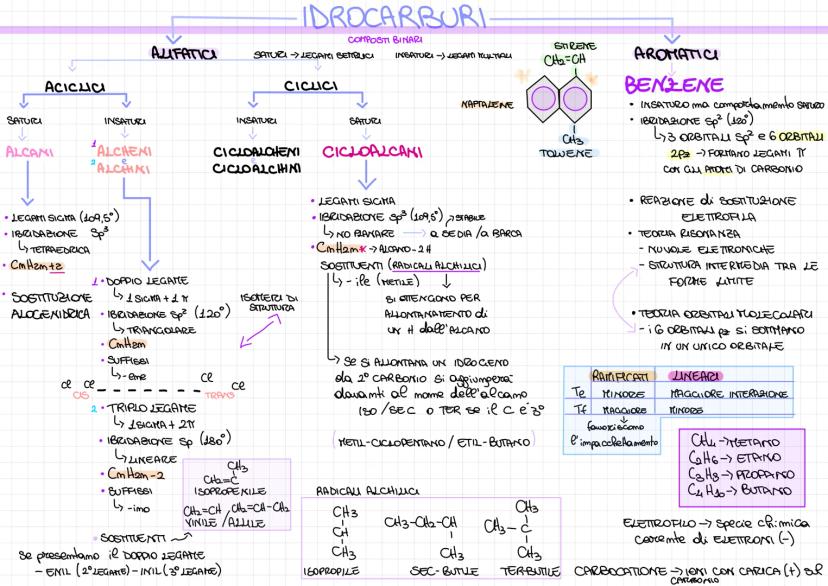 IDROCARBURI
COMPOSTI BINARI
ALIFATICI
SATURI → LEGAMI SEMPLICI
INSATURI → LEGAMI MULTIPLI
AROMATICI
ACICLICI
CICLICI
SATURI
INSATURI
INSATURI
SATURI
ALCANI
1 ALCHENI
e
2 ALCHINI
CICLOALCHENI
CICLOALCHINI
CICLOALCANI
STIRENE
CH₂=CH
NAFTALENE
CH₃
TOLUENE
BENZENE
• INSATURO ma comportamento SATURO
• IBRIDAZIONE Sp² (120°)
↳ 3 ORBITALI Sp² e 6 ORBITALI
2pz → FORMANO LEGAMI π
CON GLI ATOMI DI CARBONIO
• REAZIONE di SOSTITUZIONE
ELETTROFILA
• TEORIA RISONANZA
- NUVOLE ELETTRONICHE
- STRUTTURA INTERMEDIA TRA LE
FORME LIMITE
• TEORIA ORBITALI MOLECOLARI
- i 6 ORBITALI pz si SOMMANO
IN UN UNICO ORBITALE
• LEGAMI SIGMA (109,5°)
• IBRIDAZIONE Sp³
↳ TETRAEDRICA
• CmH2m+2
• SOSTITUZIONE
ALOGENIDRICA
1 • DOPPIO LEGAME
↳ 1 SIGMA + 1 π
• IBRIDAZIONE Sp² (120°)
↳ TRIANGOLARE
• CmH2m
• SUFFISSI
↳ -ene
ISOMERI DI
STRUTTURA
Cl Cl
CIS
Cl
Cl
TRANS
2 • TRIPLO LEGAME
↳ 1 SIGMA + 2π
• IBRIDAZIONE Sp (180°)
↳ LINEARE
• CmH2m-2
• SUFFISSI
↳ -ino
• SOSTITUENTI
Se presentano il DOPPIO LEGAME
- ENIL (2° LEGAME) - INIL (3° LEGAME)
CH₃
CH₂=C
ISOPROPENILE
CH₂=CH / CH₂=CH-CH₂
VINILE / ALLILE
• LEGAMI SIGMA
• IBRIDAZIONE Sp³ (109,5°) ↗ STABILE
↳ NO PLANARE → a SEDIA / a BARCA
• CmH2m → ALCANO - 2H
SOSTITUENTI (RADICALI ALCHILICI)
↳ - ile (METILE)
SI OTTENGONO PER
ALLONTANAMENTO di
UN H dall'ALCANO
↳ SE SI ALLONTANA UN IDROGENO
da 2° CARBONIO si aggiungerà
davanti al nome dell'alcano
ISO / SEC O TER SE IL C È 3°
(METIL-CICLOPENTANO / ETIL-BUTANO)
RADICALI ALCHILICI
CH₃
CH
CH₃
ISOPROPILE
CH₃-CH₂-CH
CH₃
SEC-BUTILE
CH₃
CH₃-C
CH₃
TER-BUTILE
RAMIFICATI LINEARI
Te MINORE MAGGIORE INTERAZIONE
Tf MAGGIORE MINORE
favoriscono
l'impacchettamento
CH₄ → METANO
C₂H₆ → ETANO
C₃H₈ → PROPANO
C₄H₁₀ → BUTANO
ELETTROFILO → specie chimica
carente di ELETTRONI (-)
CARBOCATIONE → IONI CON CARICA (+) sul
CARBONIO